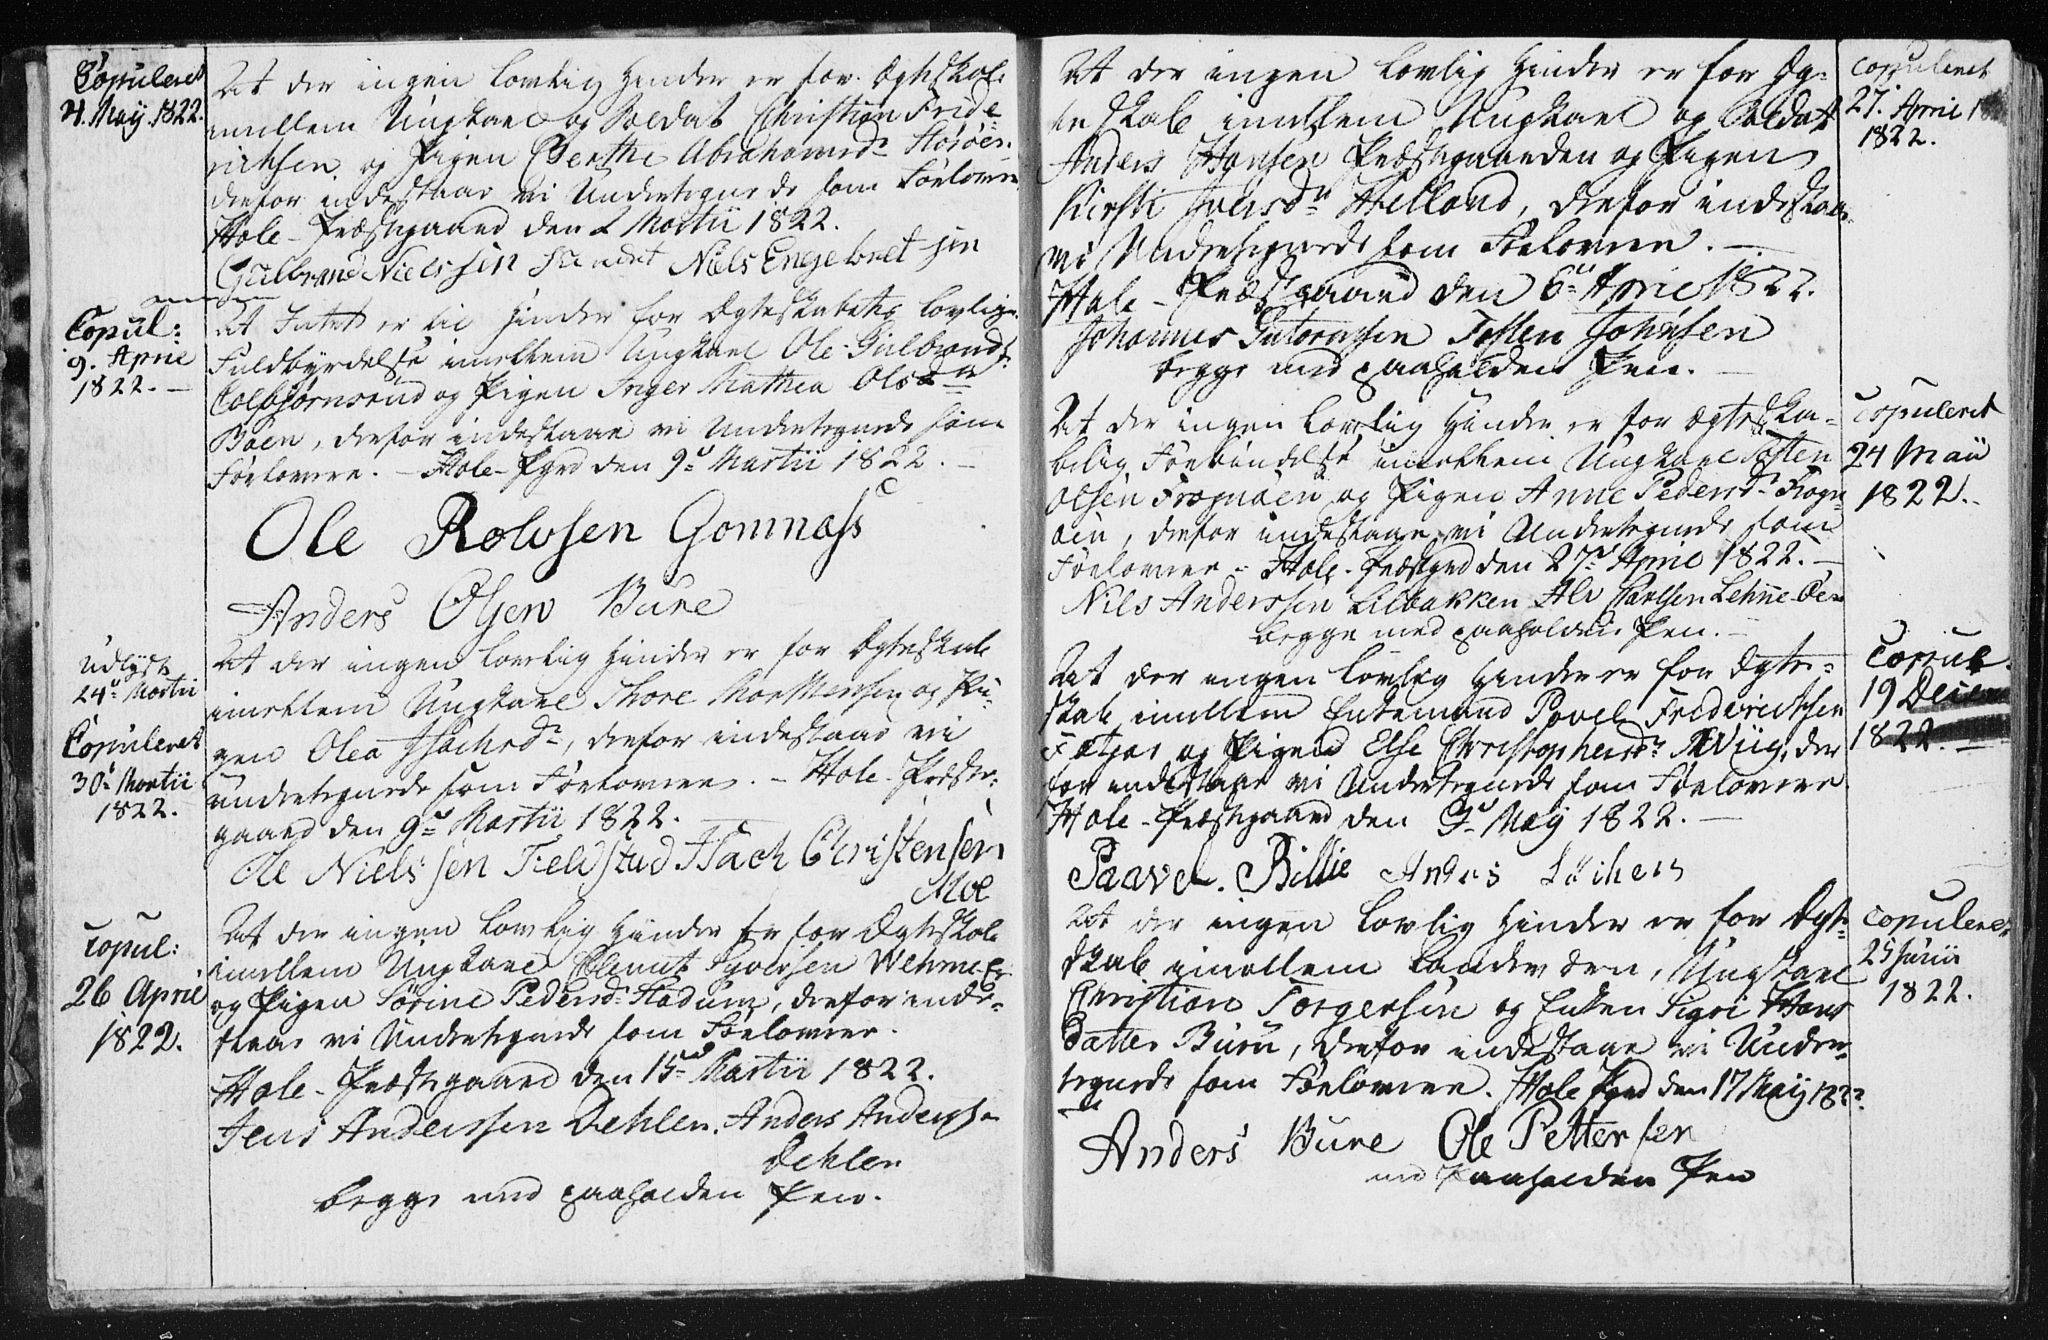 Copuleret
4. May. 1822.
At der ingen lovlig Hinder er for Ægteskab
imellem Ungkarl og Soldat Christian Fride-
richsen og Pigen Berthe Abrahamsd.
derfor indestaar vi Undertegnede som Forlovere
Hole-Præstegaard den 2 Martii 1822.
Gulbrand Nielssen Niels Engebret sen
Copul:
9. April
1822. —
At Intet er til Hinder for Ægteskabets lovlige
Fuldbyrdelse imellem Ungkarl Ole Gulbrands.
Colbjørnsrud og Pigen Inger Mathea Olsdr
Boen, derfor indestaae vi Undertegnede som
Forlovere. — Hole-Pgrd den 9de Martii 1822. —
Ole Rolvsen Gomnæss
Anders Olsen Bure
Udlyst
24de Martii
Copuleret
30. Martii
1822.
At der ingen lovlig Hinder er for Ægteskab
imellem Ungkarl Thore Morthensen og Pi-
gen Olea Isachsdr, derfor indestaar vi
undertegnede som Forlovere. — Hole-Præste-
gaard den 9de Martii 1822.
Ole Niels sen Fieldstad Isach Christensen
Moe
Copul:
26 April
1822.
At der ingen lovlig Hinder er for Ægteskab
imellem Ungkarl Clemet Syversen
og Pigen Sørine Pedersd. Stadum, derfor inde-
staar vi Undertegnede som Forlovere.
Hole-Præstegaard den 15de Martii 1822.
Jens Anderssen Oehlen. Anders Anderss.
Oehlen
begge med paaholden Pen.
At der ingen lovlig Hinder er for Æg-
teskab imellem Ungkarl og Soldat
Anders Hansen Præstegaarden og Pigen
Kirsti Iversdr Helland, derfor indestaae
vi Undertegnede som Forlovere. —
Hole-Præstegaard den 6te April 1822.
Johannes Gutormsen Tosten Johnsen
begge med paaholden Pen. —
Copuleret
27. April
1822.
At der ingen lovlig Hinder er for ægteska-
belig Forbindelse imellem Ungkarl Tosten
Olsen Frognøen og Pigen Anne Pedersd. Frogn-
øen, derfor indestaae vi Undertegnede som
Forlovere — Hole-Præstgrd den 27de April 1822. —
Nils Anderssen Lilbakken
begge med paaholden Pen. —
Copuleret
24 Maii
1822.
At der ingen lovlig Hinder er for Ægte-
skab imellem Enkemand Povel Friderichsen
og Pigen Else Christophersdr Wiig, der
for indestaae vi Undertegnede som Forlovere
Hole-Præstegaard den 9de May 1822. —
Paavel. Billie Anders
Copul.
19 Decem
1822. —
At der ingen lovlig Hinder er for Ægte
skab imellem Ungkarl
Christian Torgersen og Enken Sigri Hans
datter Buru, derfor indestaae vi Under-
tegnede som Forlovere. Hole Pgrd den 17 May 1822.
Anders Bure Ole Pettersen
med Paaholden Pen
Copuleret
25 Junii
1822.